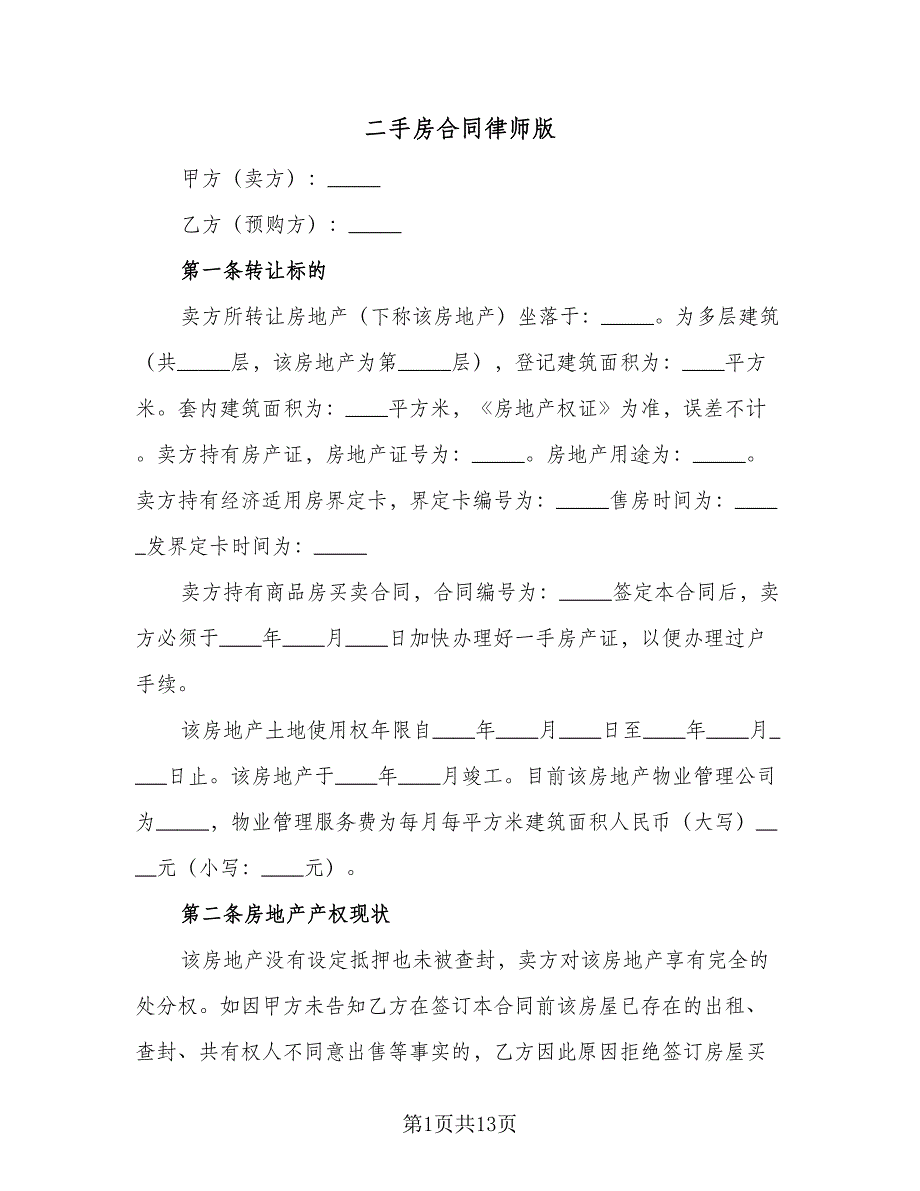 二手房合同律师版
甲方（卖方）：_____
乙方（预购方）：_____
第一条转让标的
卖方所转让房地产（下称该房地产）坐落于：_____。为多层建筑
（共_____层，该房地产为第_____层），登记建筑面积为：____平方
米。套内建筑面积为：____平方米，《房地产权证》为准，误差不计
。卖方持有房产证，房地产证号为：_____。房地产用途为：_____。
卖方持有经济适用房界定卡，界定卡编号为：_____售房时间为：____
_发界定卡时间为：_____
卖方持有商品房买卖合同，合同编号为：_____签定本合同后，卖
方必须于____年____月____日加快办理好一手房产证，以便办理过户
手续。
该房地产土地使用权年限自____年____月____日至____年____月_
___日止。该房地产于____年____月竣工。目前该房地产物业管理公司
为_____，物业管理服务费为每月每平方米建筑面积人民币（大写）__
__元（小写：____元）。
第二条房地产产权现状
该房地产没有设定抵押也未被查封，卖方对该房地产享有完全的
处分权。如因甲方未告知乙方在签订本合同前该房屋已存在的出租、
查封、共有权人不同意出售等事实的，乙方因此原因拒绝签订房屋买
第1页共13页